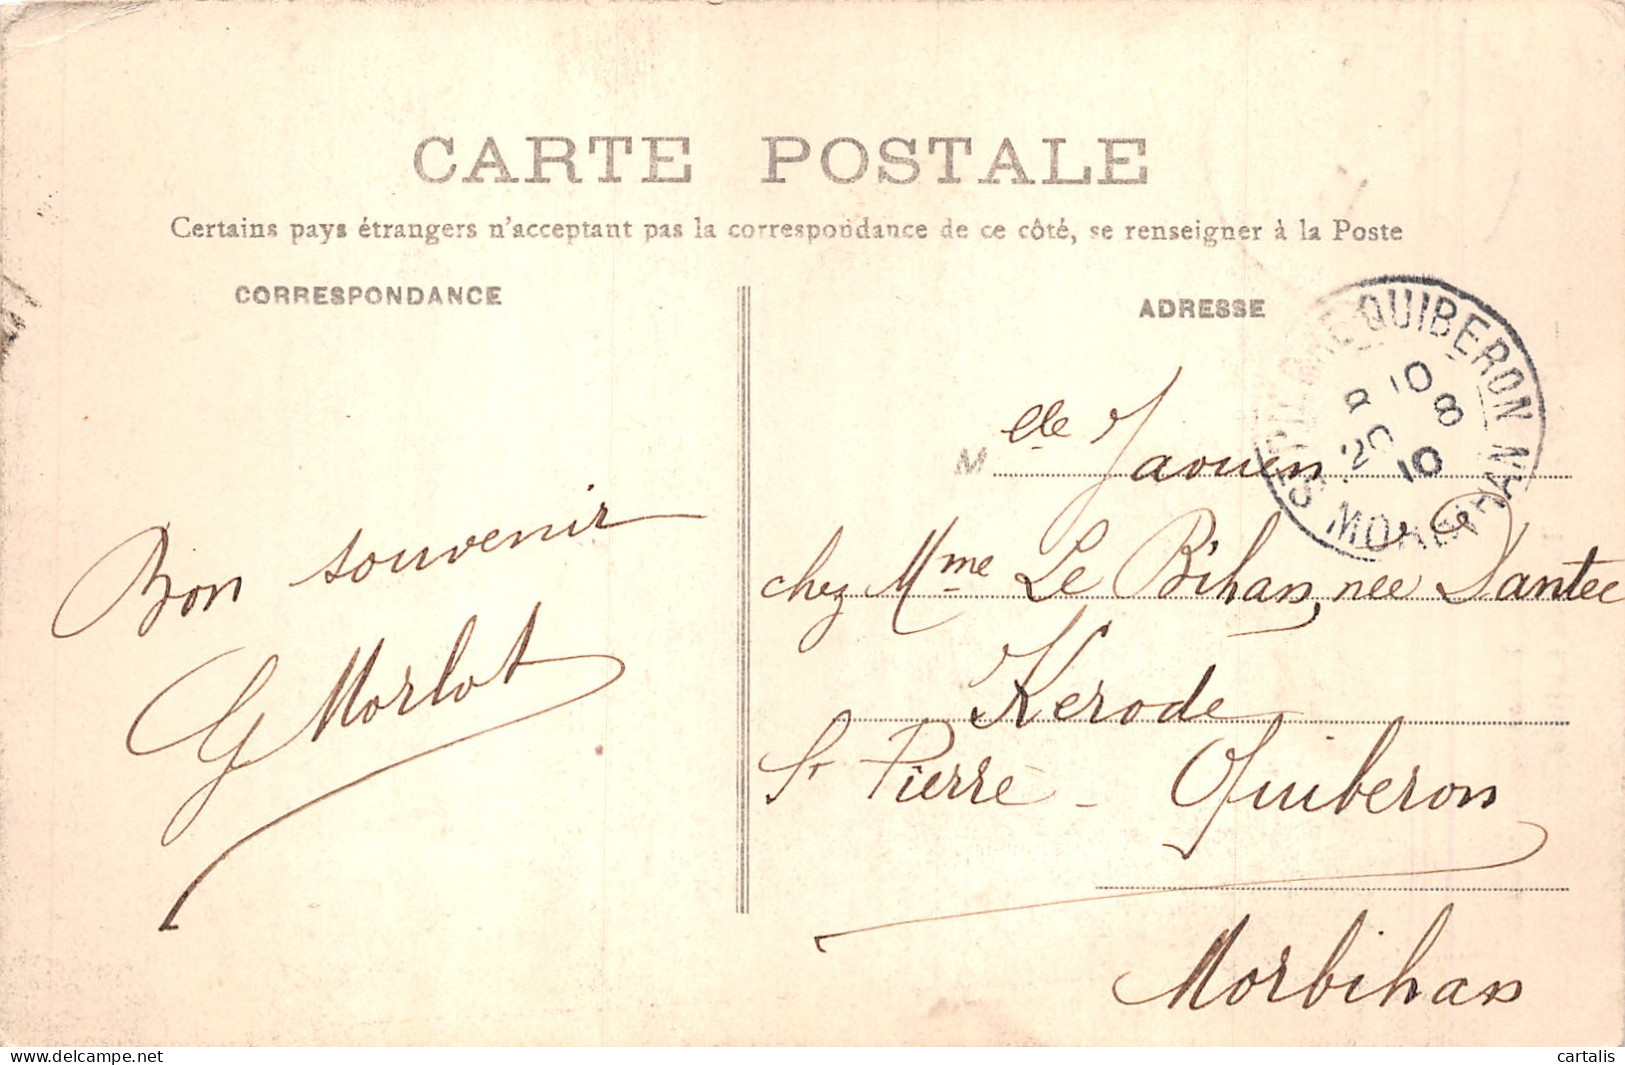 CARTE POSTALE
Certains pays étrangers n'acceptant pas la correspondance de ce côté, se renseigner à la Poste
CORRESPONDANCE
ADRESSE
Bon souvenir
G Morlot
M elle Jaouen
chez Mme Le Bihan, née Dantec
Kerode
St Pierre - Quiberon
Morbihan
QUIBERON
10
20 8
10
MORBIHAN
delcampe.net
cartalis